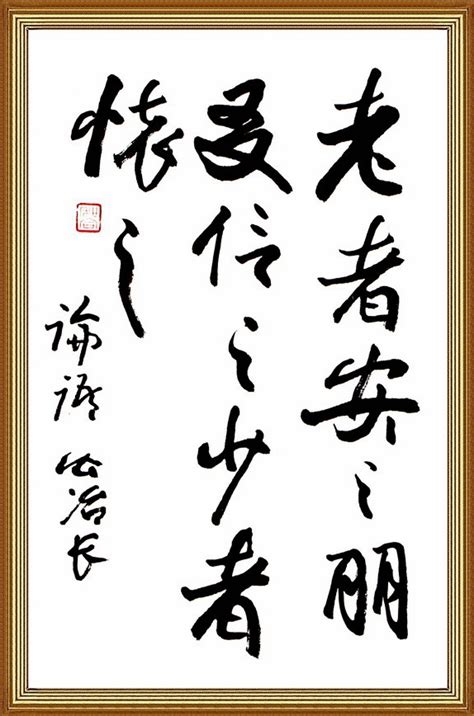 老者安之朋
友信之少者
怀之
论语 公冶长